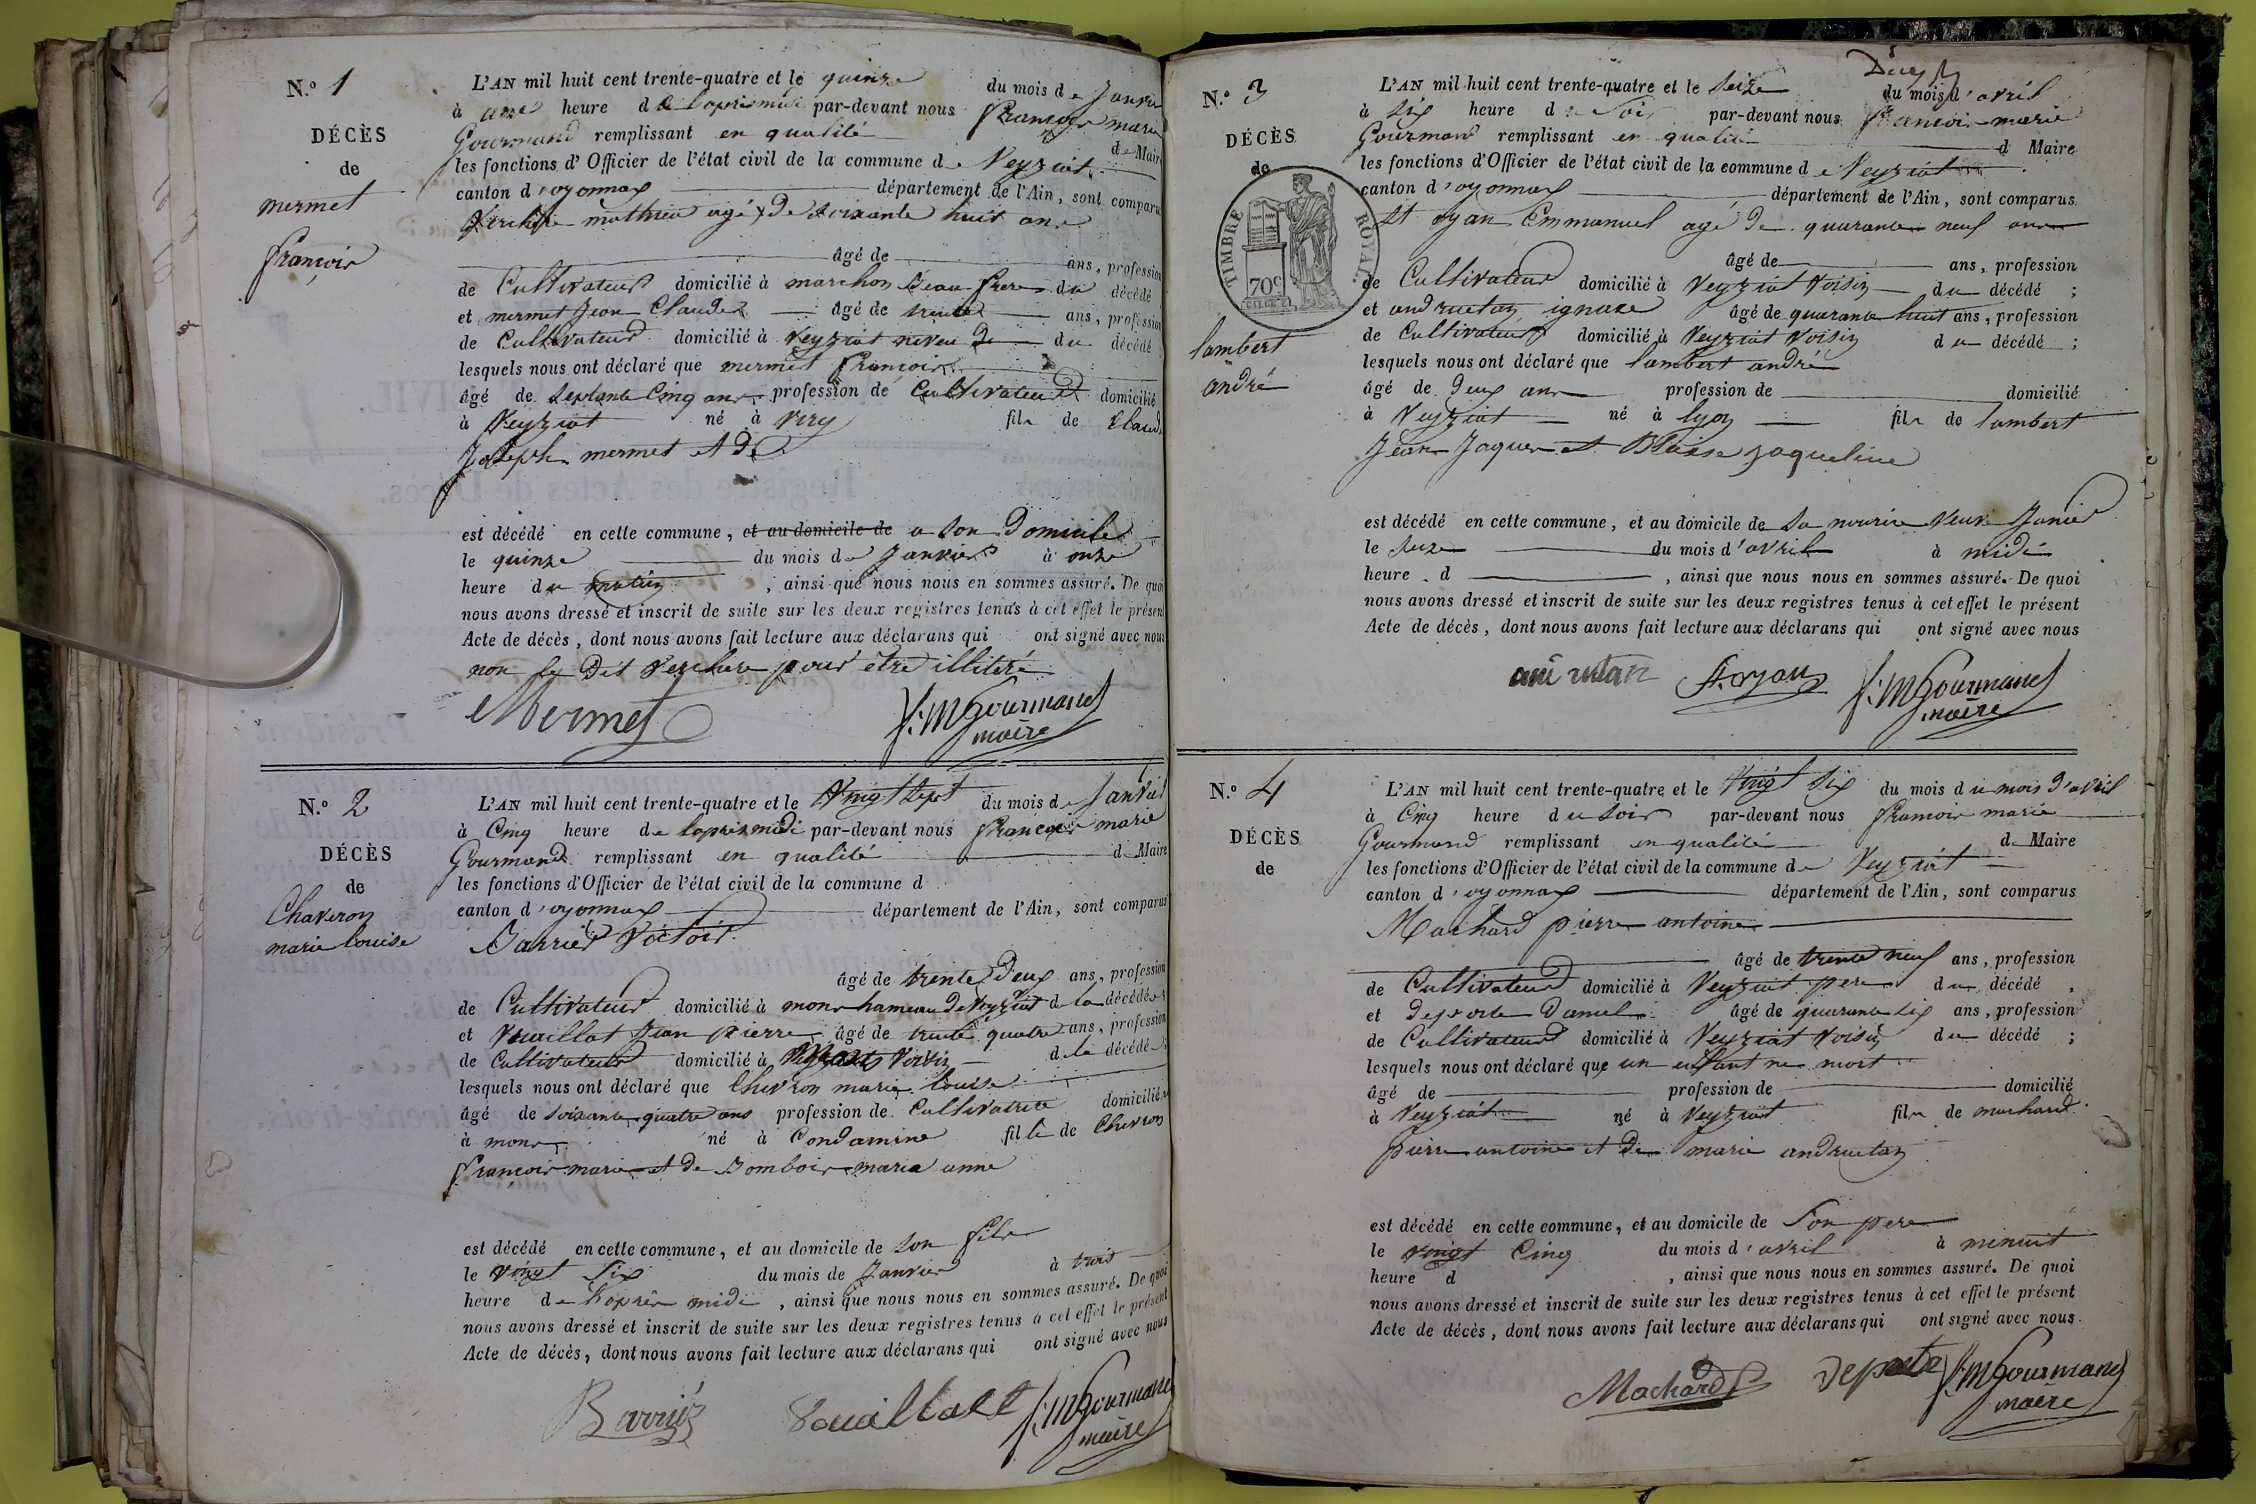 N.º 1
DÉCÈS
de
mermet
françois
L'AN mil huit cent trente-quatre et le quinze du mois de Janvier
à une heure de l'aprismidi par-devant nous françois marie
Gourmand remplissant en qualité de Maire
les fonctions d'Officier de l'état civil de la commune de Veyziat
canton d'oyonnax département de l'Ain, sont comparus
Verchere mathieu agé de soixante huit ans
âgé de ans, profession
de Cultivateur domicilié à marchon Beau frere du décédé
et mermet Jean Claude âgé de trente ans, profession
de Cultivateur domicilié à Veyziat neveu du décédé
lesquels nous ont déclaré que mermet françois
âgé de septante Cinq ans profession de Cultivateur domicilié
à Veyziat né à viry fils de Claude
Joseph mermet et de
est décédé en cette commune, et au domicile de a son Domicile
le quinze du mois de Janvier à onze
heure du matin, ainsi que nous nous en sommes assuré. De quoi
nous avons dressé et inscrit de suite sur les deux registres tenus à cet effet le présent
Acte de décès, dont nous avons fait lecture aux déclarans qui ont signé avec nous
non le Dit Verchere pour être illitéré
Mermet f: M Gourmand
maire
N.º 2
DÉCÈS
de
Chaveron
marie louise
L'AN mil huit cent trente-quatre et le Vingt sept du mois de Janvier
à Cinq heure de lapris midi par-devant nous françois marie
Gourmand remplissant en qualité d Maire
les fonctions d'Officier de l'état civil de la commune d
canton d'oyonnax département de l'Ain, sont comparus
Barrier Victoir
âgé de trente Deux ans, profession
de Cultivateur domicilié à mons hameau de Veyziat de la décédée
et Vouaillat Jean pierre âgé de trente quatre ans, profession
de Cultivateur domicilié à Voisin de la décédée
lesquels nous ont déclaré que Chevron marie louise
âgé de soixante quatre ans profession de Cultivatrice domicilié
à mons né à Condamine fille de Chevron
françois marie et de Bombois maria anne
est décédé en cette commune, et au domicile de son fils
le vingt Six du mois de Janvier à trois
heure de l'après midi, ainsi que nous nous en sommes assuré. De quoi
nous avons dressé et inscrit de suite sur les deux registres tenus à cet effet le présent
Acte de décès, dont nous avons fait lecture aux déclarans qui ont signé avec nous
Barriér Vouaillat f: M Gourmand
maire
N.º 3
DÉCÈS
de
TIMBRE ROYAL
70c
lambert
andré
L'AN mil huit cent trente-quatre et le seize du mois d'avril
à six heure du Soir par-devant nous francois marie
Gourmand remplissant en qualité d Maire
les fonctions d'Officier de l'état civil de la commune de Veyziat
canton d'oyonnax département de l'Ain, sont comparus
St oyan Emmanuel agé de quarante neuf ans
âgé de ans, profession
de Cultivateur domicilié à Veyziat Voisin du décédé ;
et andruetan ignace âgé de quarante huit ans, profession
de Cultivateur domicilié à Veyziat Voisin du décédé ;
lesquels nous ont déclaré que lambert andré
âgé de Deux ans profession de domicilié
à Veyziat né à lyon fils de lambert
Jean Jaques et Blaise jaqueline
est décédé en cette commune, et au domicile de Sa nourice Veuve Janier
le seize du mois d'avril à midi
heure d, ainsi que nous nous en sommes assuré. De quoi
nous avons dressé et inscrit de suite sur les deux registres tenus à cet effet le présent
Acte de décès, dont nous avons fait lecture aux déclarans qui ont signé avec nous
St oyan f: M Gourmand
maire
N.º 4
DÉCÈS
de
L'AN mil huit cent trente-quatre et le Vingt Six du mois du mois d'avril
à Cinq heure du Soir par-devant nous francois marie
Gourmand remplissant en qualité d Maire
les fonctions d'Officier de l'état civil de la commune de Veyziat
canton d'oyonnax département de l'Ain, sont comparus
Machard pierre antoine
âgé de trente neuf ans, profession
de Cultivateur domicilié à Veyziat pere du décédé
et Deporte Daniel âgé de quarante six ans, profession
de Cultivateur domicilié à Veyziat Voisin du décédé ;
lesquels nous ont déclaré que un enfant ne mort
âgé de profession de domicilié
à Veyziat né à Veyziat fils de machard
pierre antoine et de marie andruetan
est décédé en cette commune, et au domicile de Son pere
le vingt Cinq du mois d'avril à minuit
heure d, ainsi que nous nous en sommes assuré. De quoi
nous avons dressé et inscrit de suite sur les deux registres tenus à cet effet le présent
Acte de décès, dont nous avons fait lecture aux déclarans qui ont signé avec nous.
Machard Deporte f: M Gourmand
maire